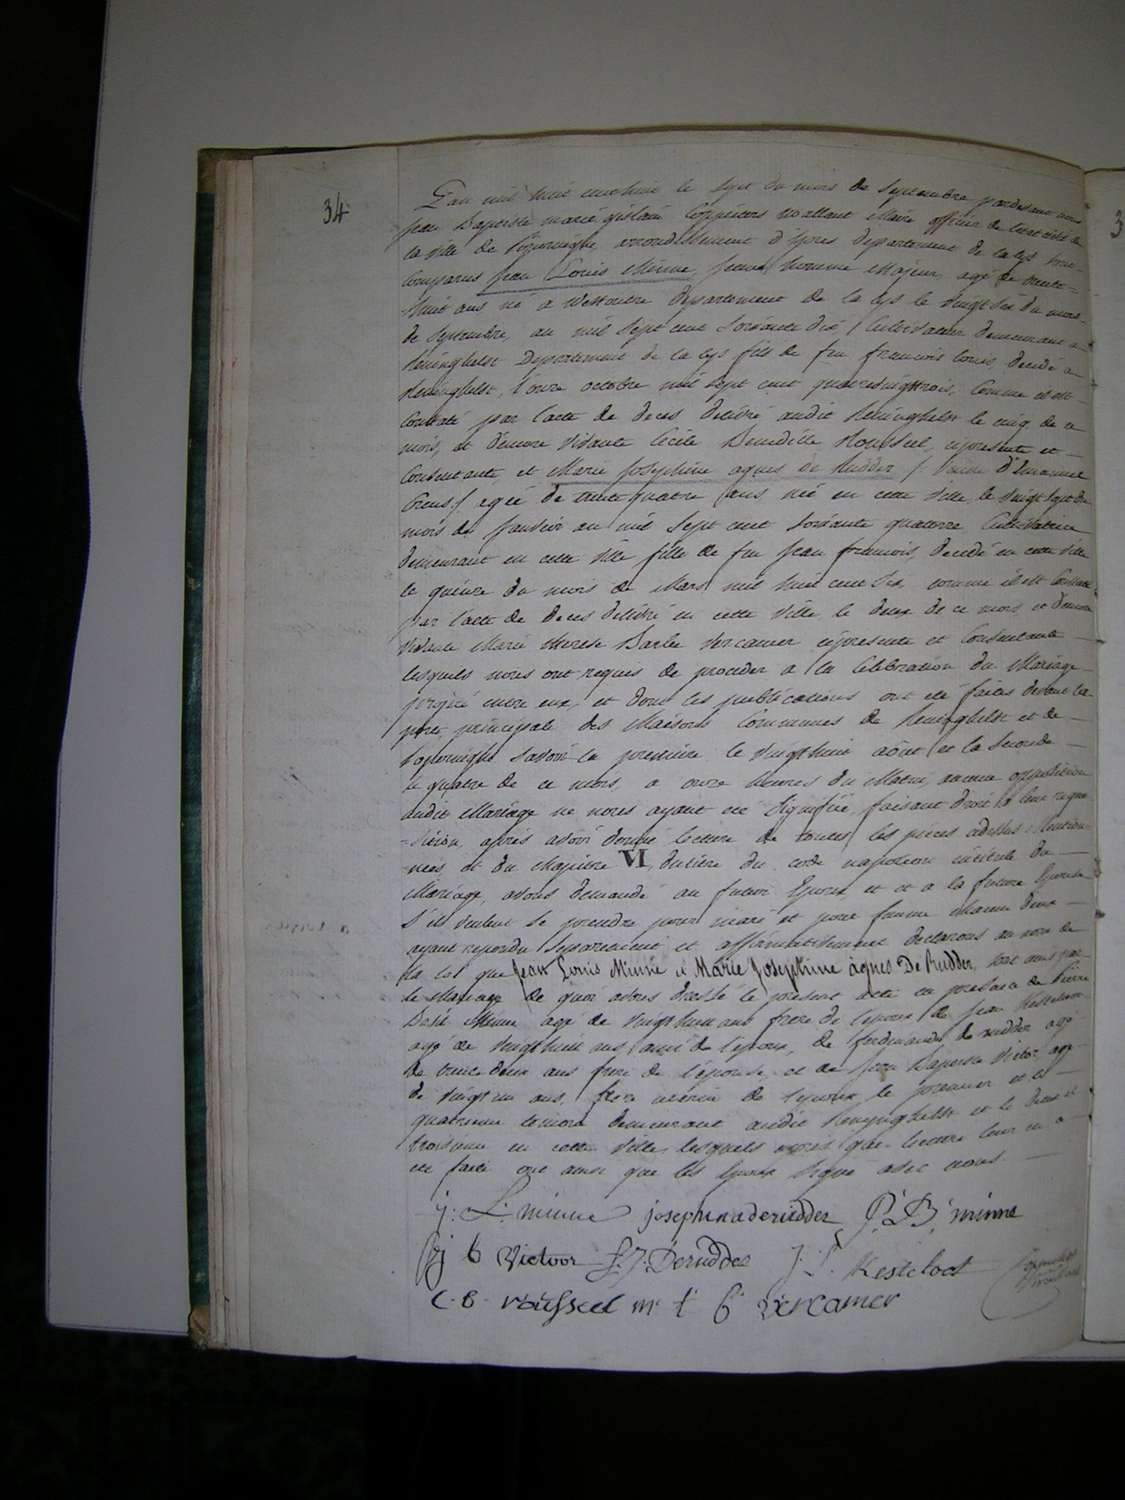 34
L'an mil huit cent huit le sept du mois de Septembre pardevant nous
Jean Baptiste marie ghislain Maire officier de l'etat civil de
la ville de arrondissement d'ypres departement de la Lys
Comparus Jean Louis Minne, jeune homme Majeur, agé de trente
huit ans né a Westoutre departement de la Lys le vingt six du mois
de Septembre, an mil Sept cent Soixante dix, Cultivateur demeurant a
Reninghelst Departement de la Lys fils de feu francois Louis, decedé a
Reninghelst, l'onze octobre mil Sept cent quatrevingttrois, Comme il est
Constaté par l'acte de deces delivré audit Reninghelst le cinq de ce
mois, et d'encore vivante Cecile Benedicte Roussel, cipresente et
Consentante, et Marie Josephine agnes de Rudder / Veuve d'Emanuel
/ agée de trente quatre ans née en cette ville, le vingt Sept du
mois de Janvier an mil Sept cent Soixante quatorze Cultivatrice
demeurant en cette ville fille de feu Jean francois, decedé en cette ville
le quinze du mois de Mars mil huit cent Six, comme il est Constaté
par l'acte de deces delivré en cette ville le deux de ce mois et d'encore
vivante Marie therese Barbe Vercamer cipresente et Consentante
lesquels nous ont requis de proceder a la Celebration du Mariage
projeté entre eux, et dont les publications ont eté faites devant la
porte principale des Maisons Communes de Reninghelst et de
Savoir la premiere le vingthuit aout et la Seconde
le quatre de ce mois, a onze heures du Matin, aucune opposition
audit Mariage ne nous ayant eté Signifiée, faisant droit a leur requi
sition, apres avoir donné lecture de toutes les pieces
nées, et du chapitre VI, du titre du code napoleon intitulé du
Mariage, avons demandé au futur Epoux, et a la future Epouse
S'ils veulent se prendre pour mari et pour femme chacun d'eux
ayant repondu Separement et affirmativement declarons au nom de
la loi que Jean Louis Minne et Marie Josephine agnes De Rudder, sont unis par
le Mariage de quoi avons dressé le present acte en presence de Pierre
Minne agé de vingthuit ans frere de l'epoux, de Jean Kesteloot
agé de vingthuit ans ami de l'epoux, de ferdinande de rudder agé
de trente deux ans frere de l'epouse, et de Jean Baptiste Victor agé
de vingt un ans, frere uterin de l'epoux, le premier et le
quatrieme temoin demeurant audit Reninghelst et le deux et
troisieme en cette ville, lesquels apres que lecture leur en a
eté faite ont ainsi que les Epoux Signé avec nous
j: L: minne josephina deruddder P: D: minne
j b Victoor F: J: Derudder J: F: Kesteloot
C: B: rousseel m: t: b: vercamer